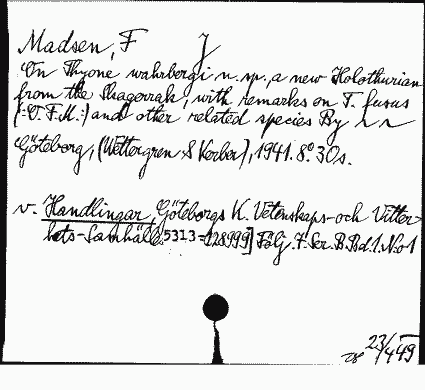 Madsen, F J
On Thyone wahrbergi n. sp., a new Holothurian
from the Skagerrak, with remarks on T. fusus
(:O.F.M.:) and other related species By
Göteborg, (Wettergren & Kerber), 1941. 8:o 30 s.
v. Handlingar, Göteborgs K. Vetenskaps- och Vitter-
hets-Samhälle 5313-128999] Följ. 7. Ser. B. Bd. 1. No 1
23/4 49